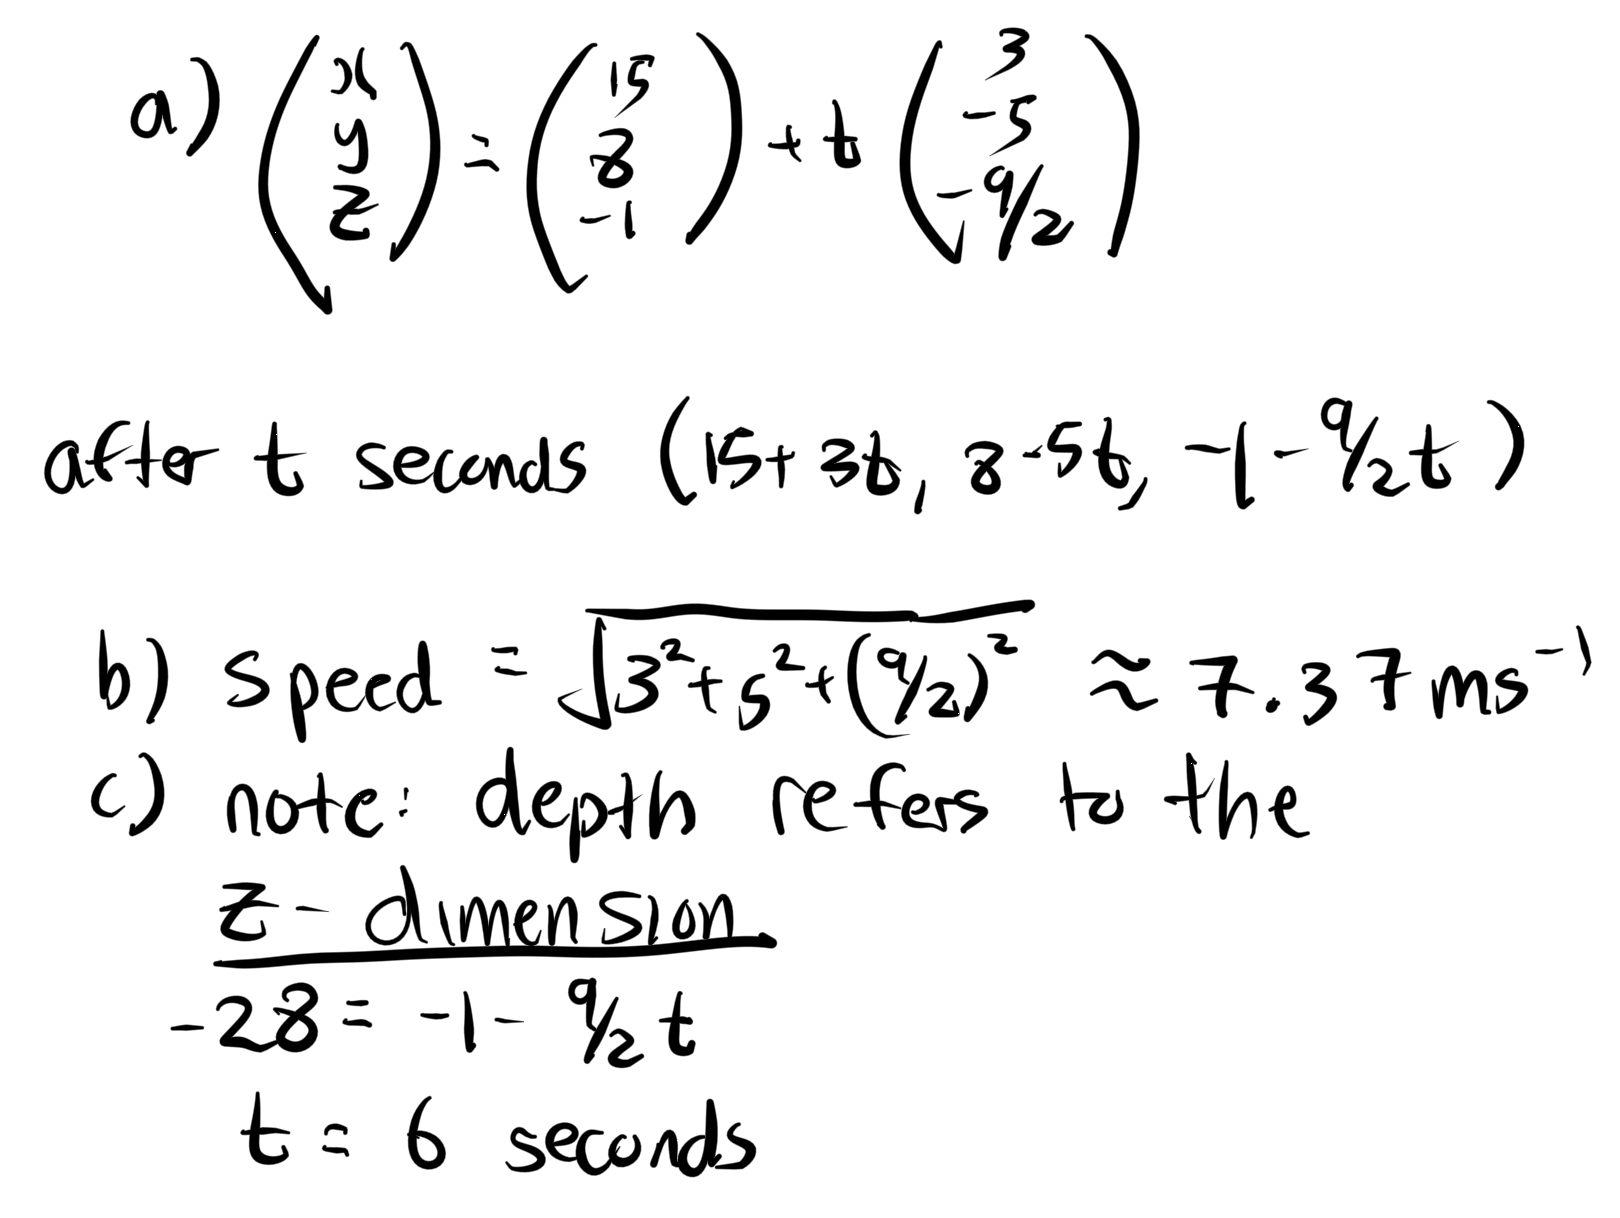 a) (x y z) = (15 8 -1) + t (3 -5 -9/2)
after t seconds (15+3t, 8-5t, -1-9/2t)
b) speed = √3²+5²+(9/2)² ≈ 7.37ms⁻¹
c) note: depth refers to the
z-dimension
-28 = -1-9/2t
t = 6 seconds